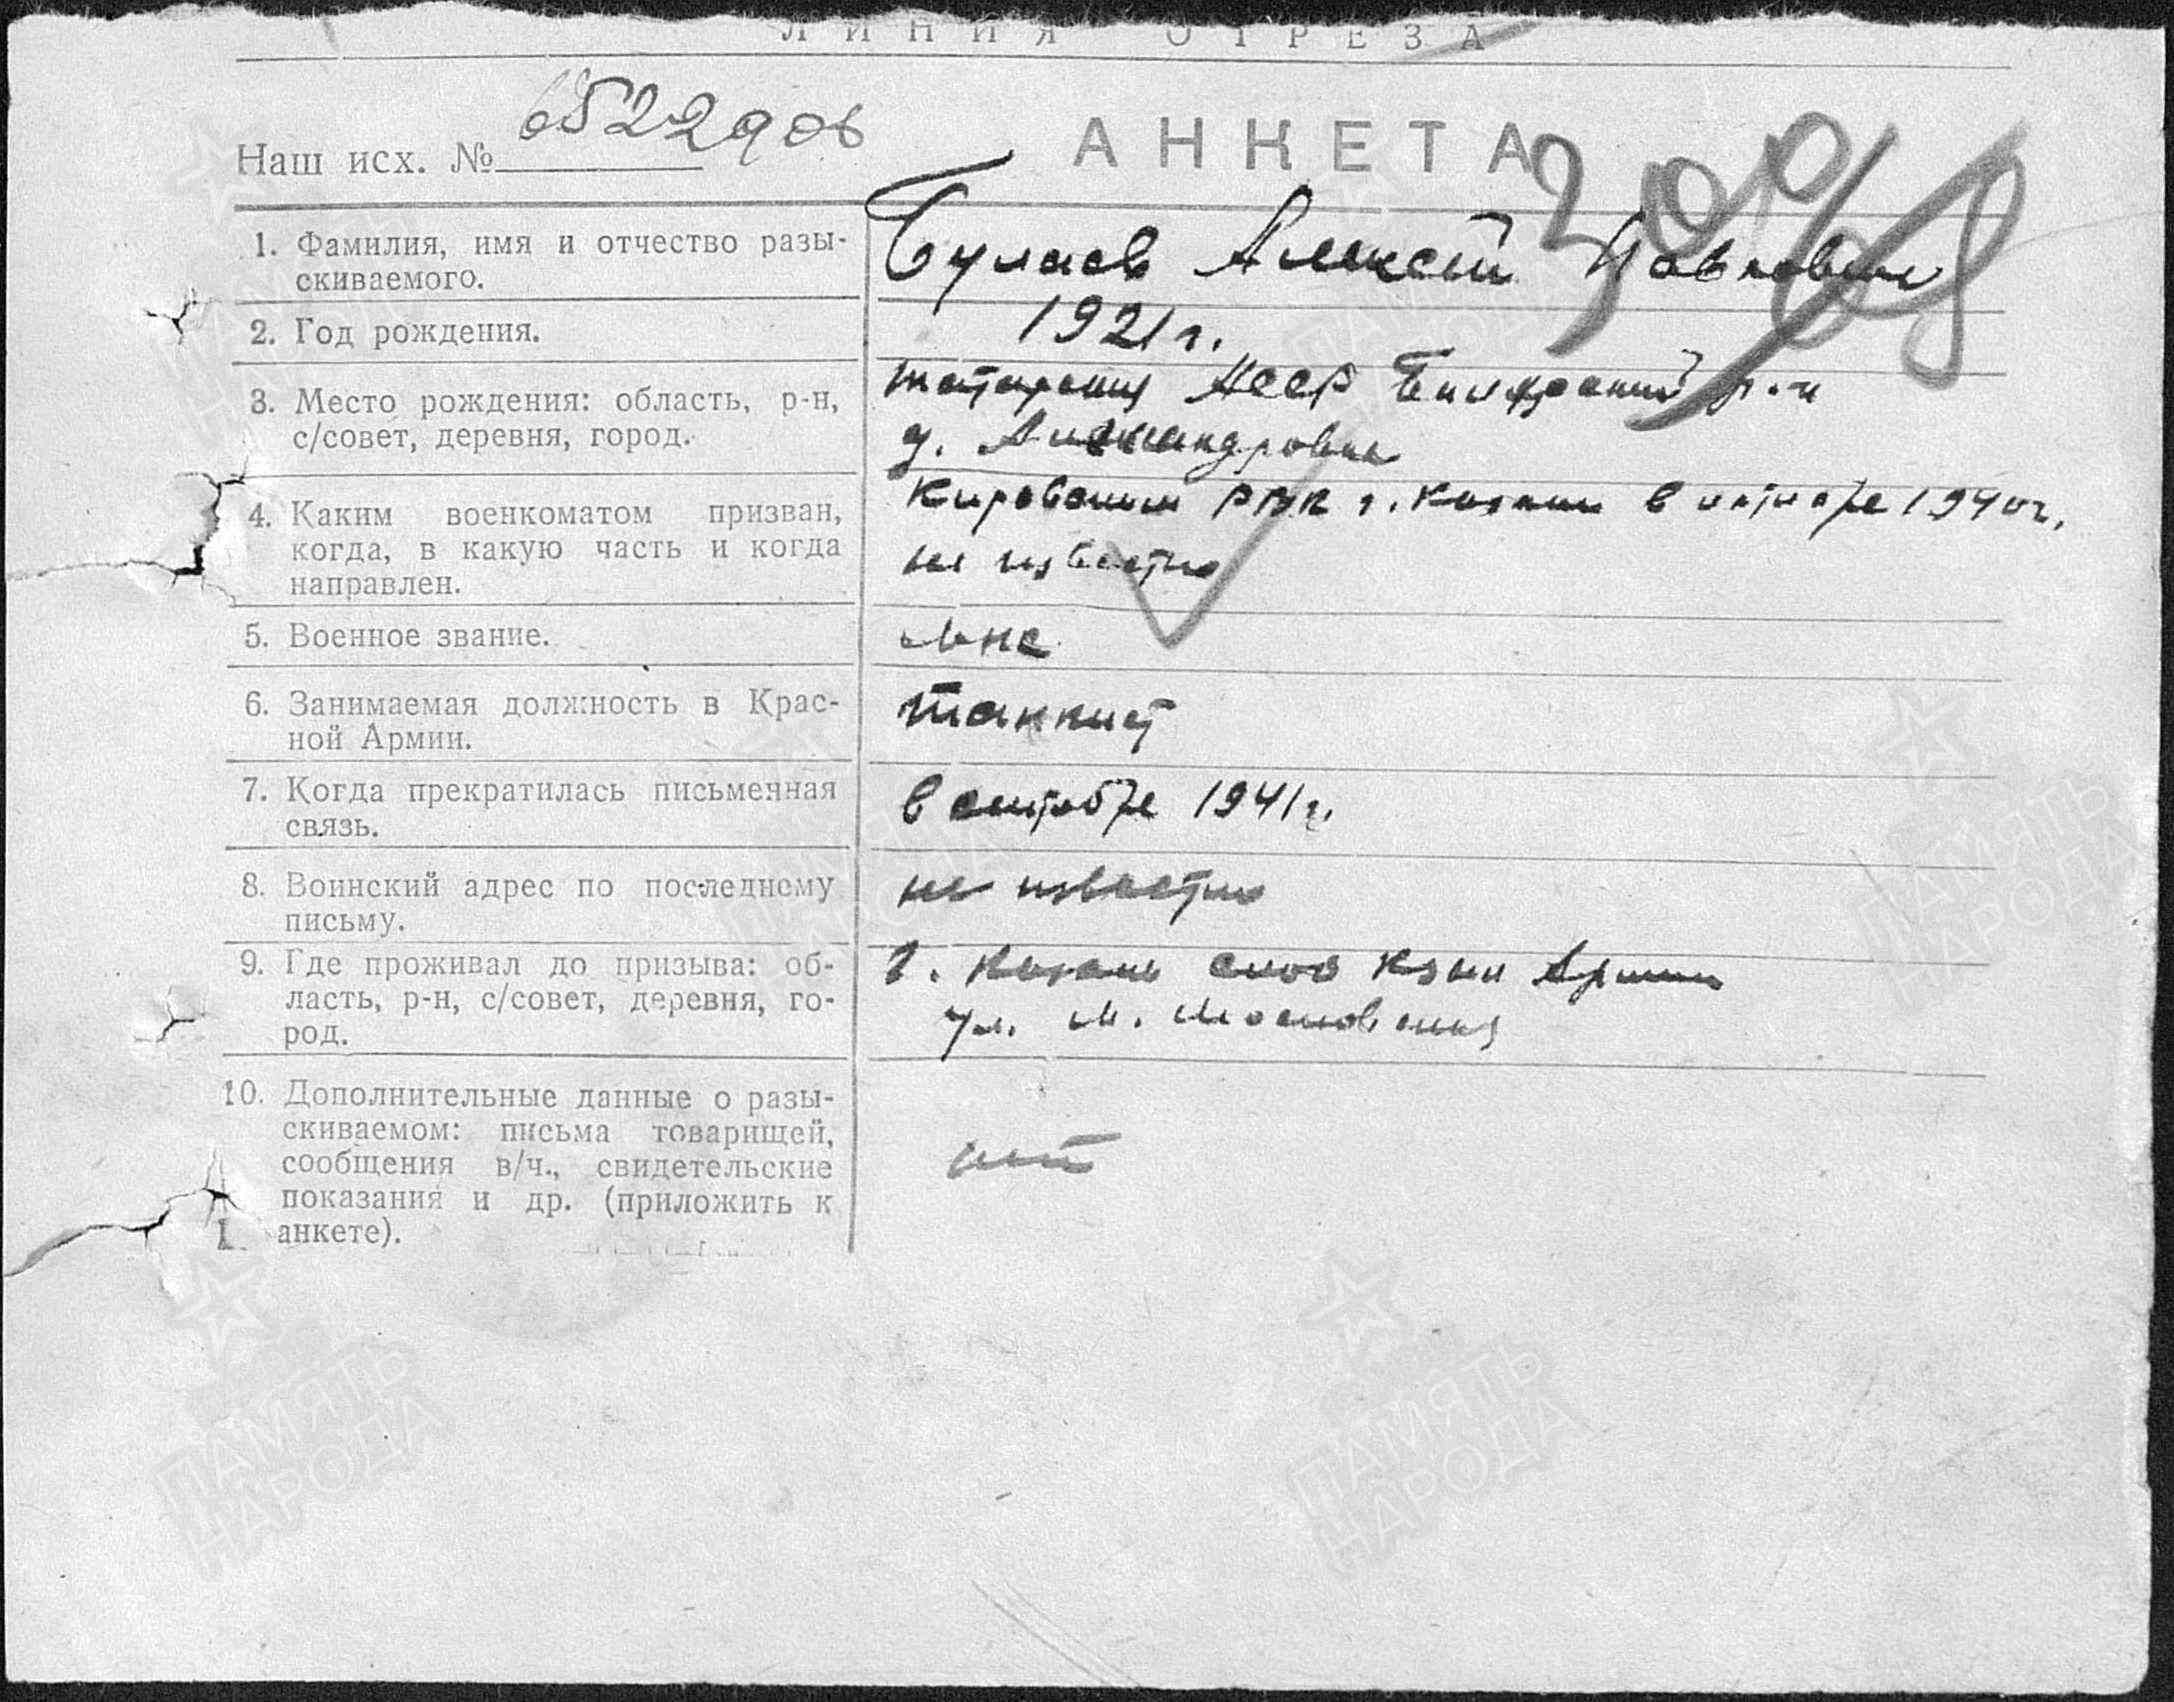 ЛИНИЯ ОТРЕЗА
Наш исх. № 6522906
АНКЕТА
1. Фамилия, имя и отчество разы-
скиваемого.
Булаев Алексей Павлович
2. Год рождения.
1921 г.
3. Место рождения: область, р-н,
с/совет, деревня, город.
Татарская АССР р-н
д. Александровка
4. Каким военкоматом призван,
когда, в какую часть и когда
направлен.
Кировским РВК г. Казани в октябре 1940 г.
не известно
5. Военное звание.
6. Занимаемая должность в Крас-
ной Армии.
танкист
7. Когда прекратилась письменная
связь.
в сентябре 1941 г.
8. Воинский адрес по последнему
письму.
не известно
9. Где проживал до призыва: об-
ласть, р-н, с/совет, деревня, го-
род.
г. Казань слоб Кзыл Армии
ул. М. Московская
10. Дополнительные данные о разы-
скиваемом: письма товарищей,
сообщения в/ч., свидетельские
показания и др. (приложить к
анкете).
нет
ПАМЯТЬ
НАРОДА